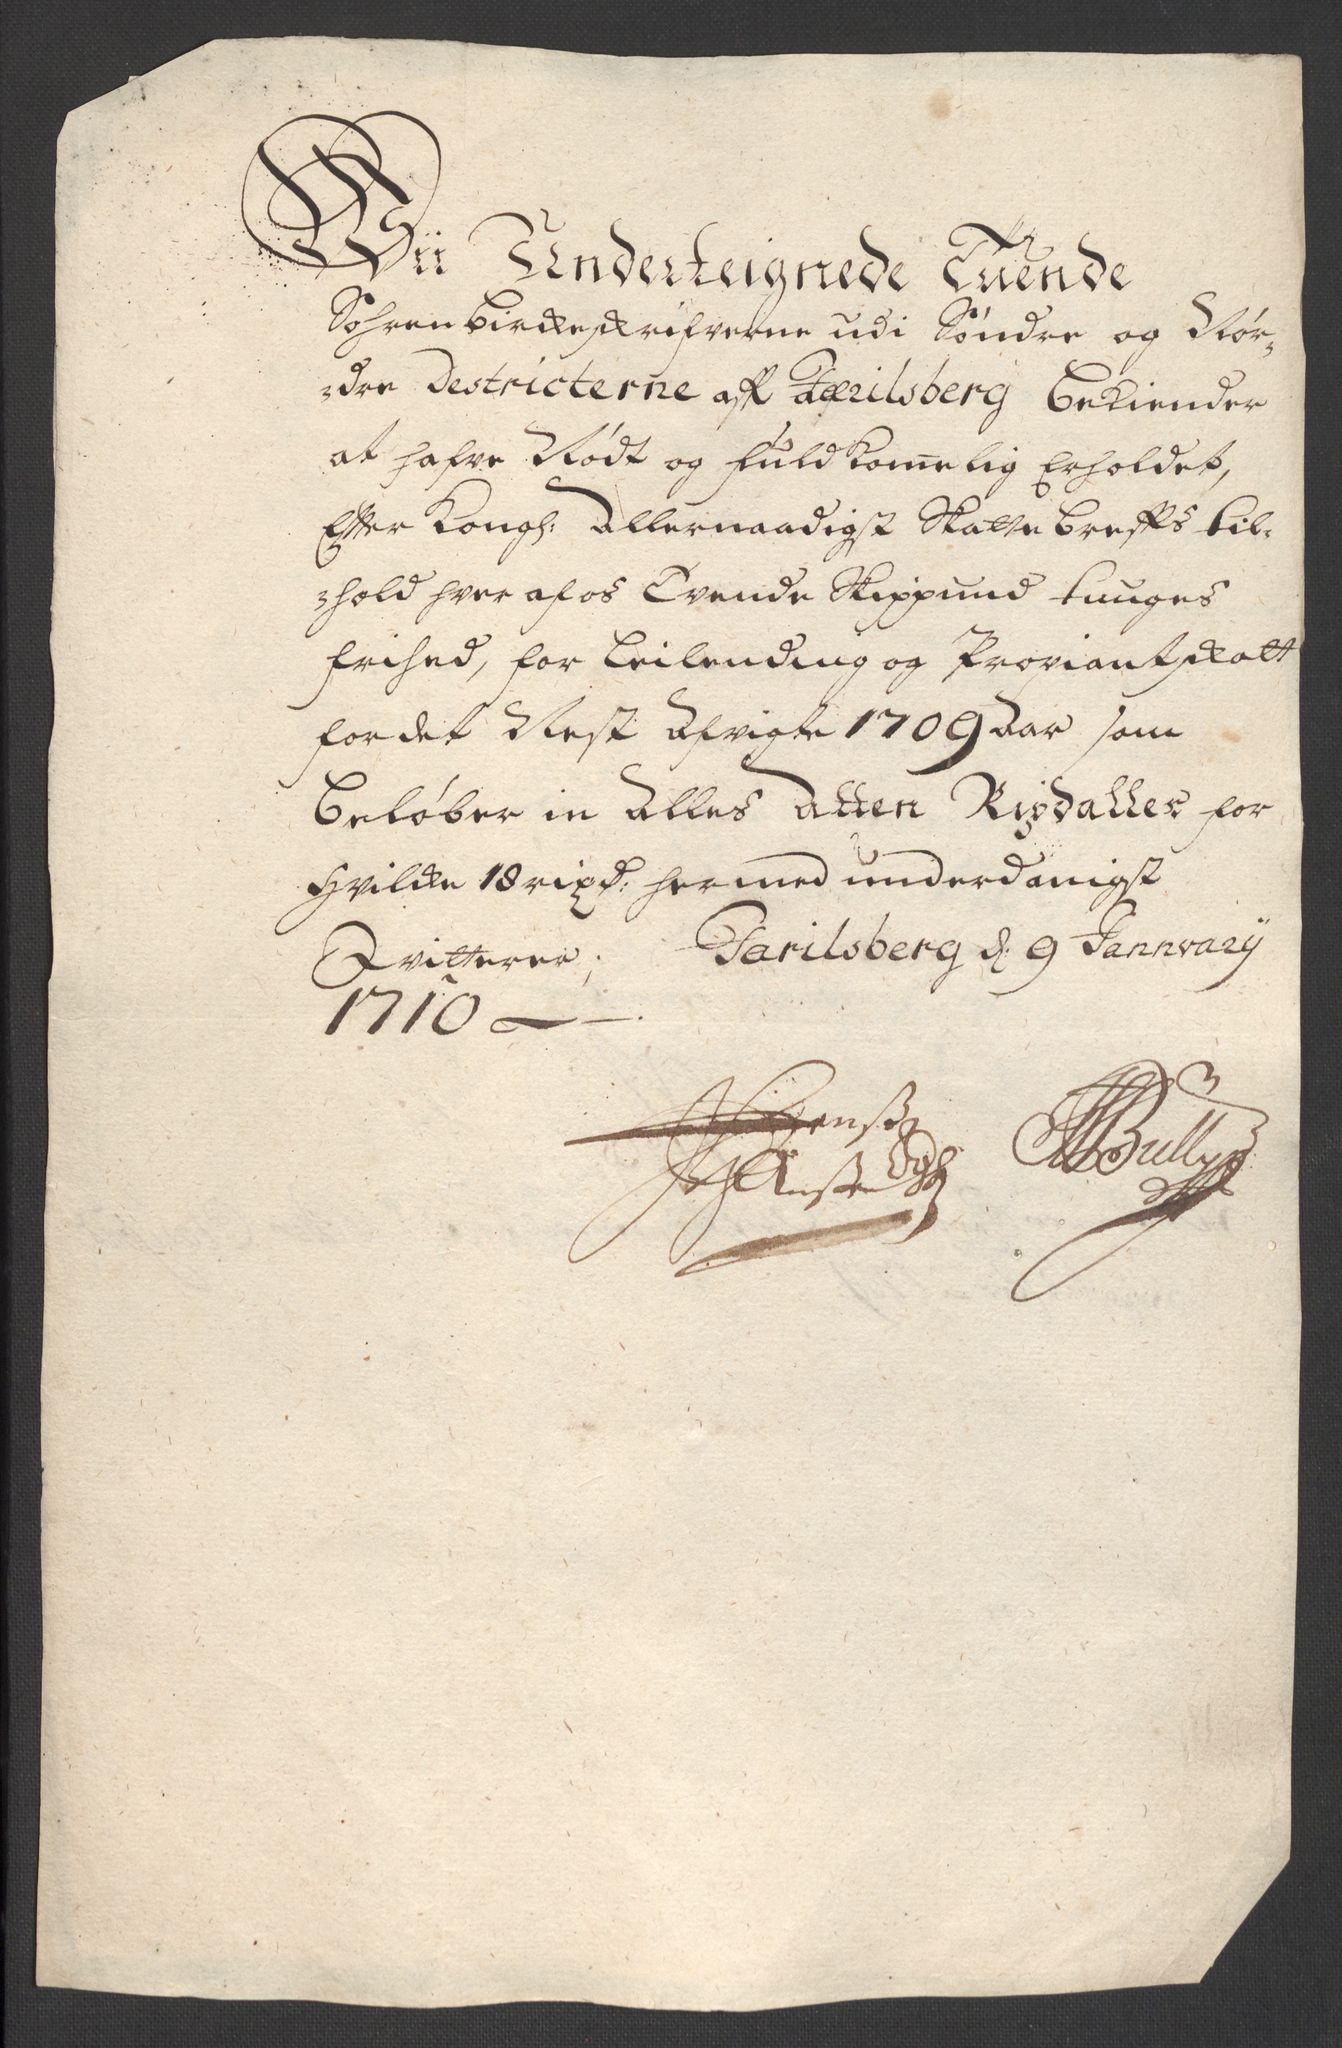 Wii Underteignede Tuende
Sohrenbirckeskrifverne udi Søndre og Nør-
-dre Destricterne aff Jarilsberg bekiender
at hafve Nødt og fuldkomelig Erholdet,
Effter Kongl: Allernaadigst Skatte breffs til-
-hold hver af os Tvende Skippund tunges
frihed, for Leilending og Proviantskatt
for det Nest Afvigte 1709 Aar som
beløber in Alles Atten Rixdaller for
Hvilcke 18 rixd: hermed underdanigst
Qvitterer; Jarilsberg d: 9 Jannvary
1710